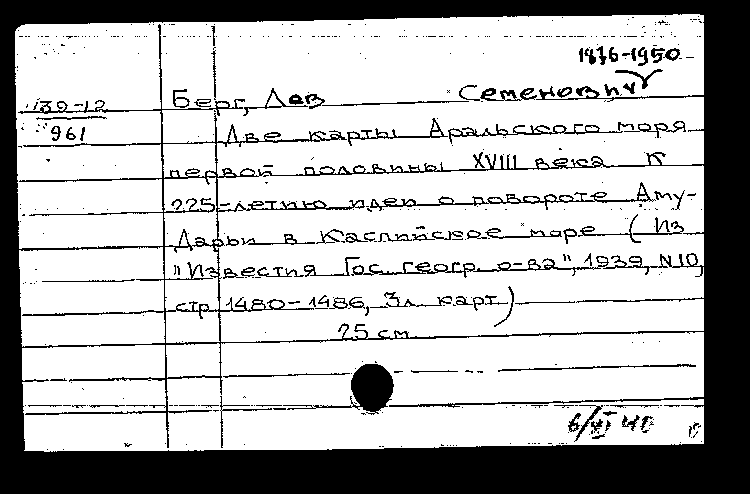 1876-1950
39-12
961
Берг, Лев Семенович
Две карты Аральского моря
первой половины XVIII века К
225-летию идеи о повороте Аму-
Дарьи в Каспийское море (Из
"Известия Гос. геогр. о-ва", 1939, N 10,
стр 1480-1486, 3 л. карт)
25 см
6/XI 40